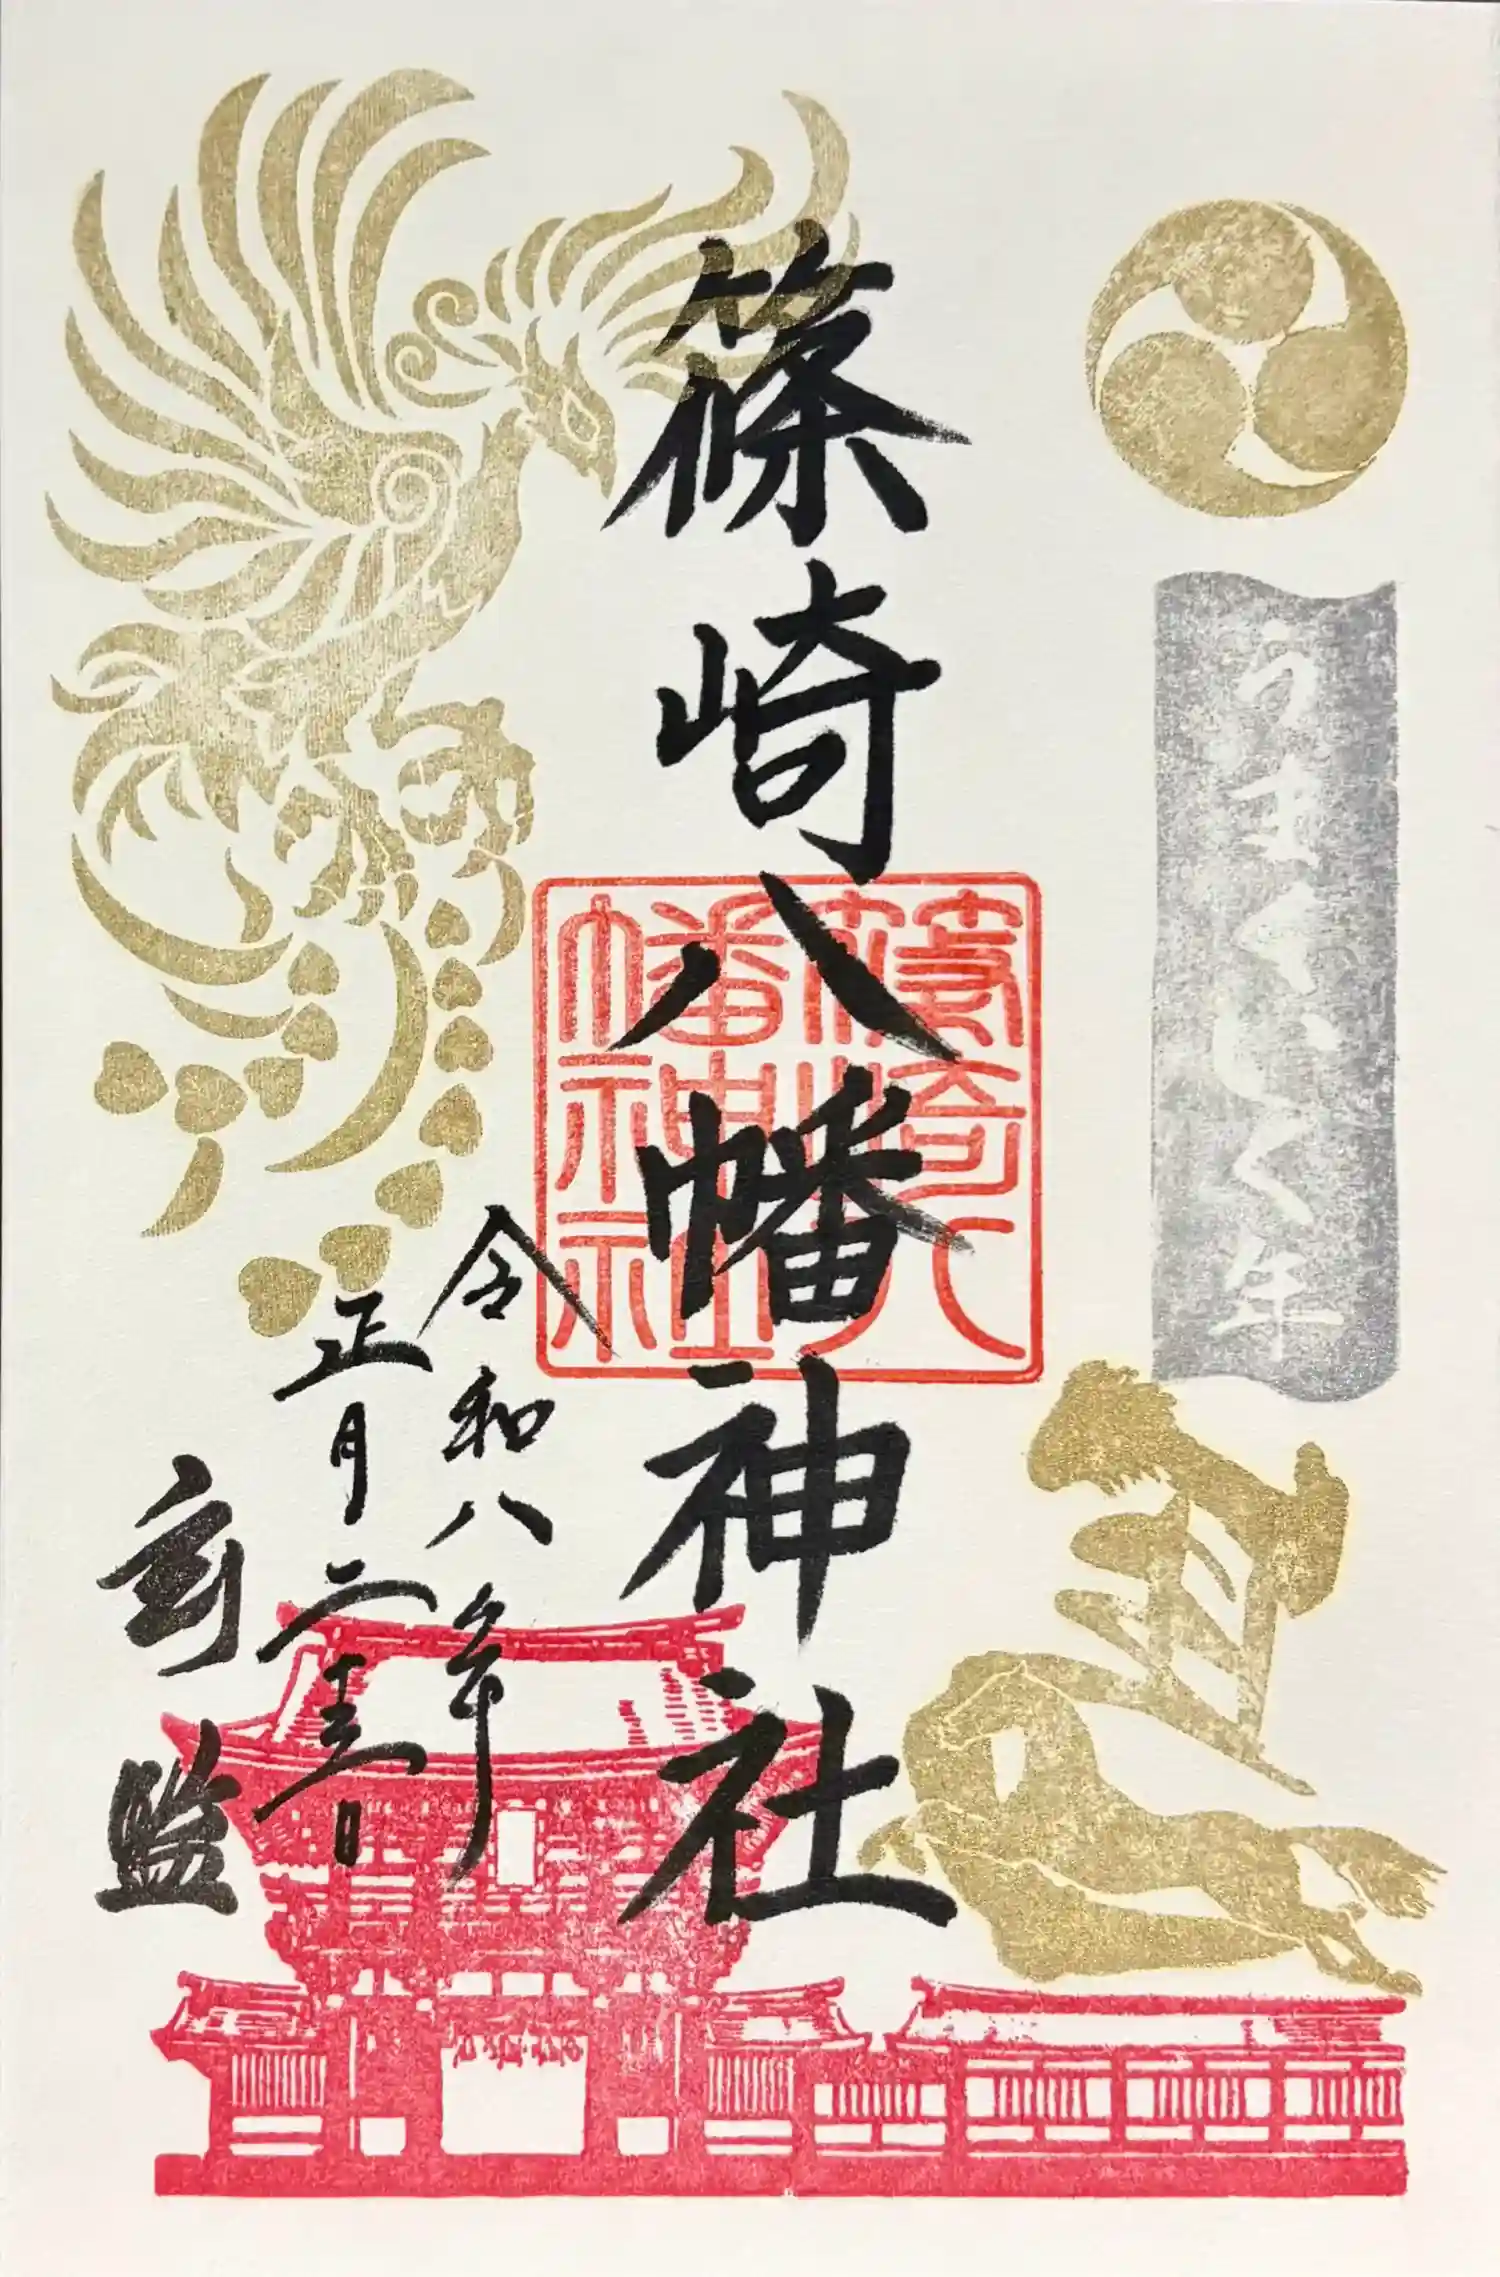 うまくいく年
篠崎八幡神社
篠崎八
幡神社
令和八年
正月二十三日